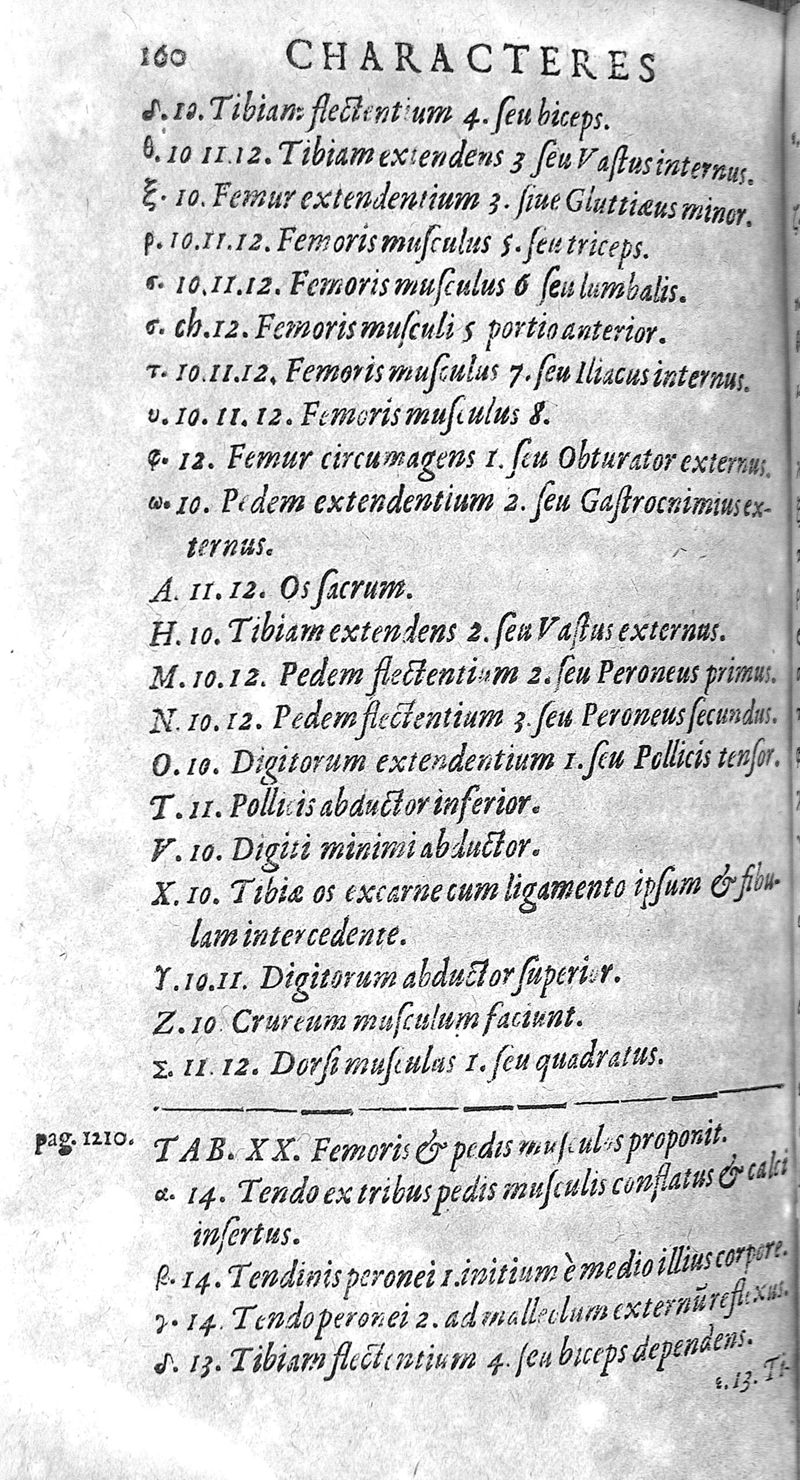 160 CHARACTERES
δ. 10. Tibiam flectentium 4. ſeu biceps.
θ. 10 11.12. Tibiam extendens 3 ſeu Vaſtus internus.
ξ. 10. Femur extendentium 3. ſiue Gluttiæus minor.
ρ. 10.11.12. Femoris muſculus 5. ſeu triceps.
σ. 10.11.12. Femoris muſculus 6 ſeu lumbalis.
σ. ch.12. Femoris muſculi 5 portio anterior.
τ. 10.11.12. Femoris muſculus 7. ſeu Iliacus internus.
υ. 10. 11. 12. Femoris muſculus 8.
φ. 12. Femur circumagens 1. ſeu Obturator externus.
ω. 10. Pedem extendentium 2. ſeu Gaſtrocnimius ex-
ternus.
A. 11. 12. Os ſacrum.
H. 10. Tibiam extendens 2. ſeu Vaſtus externus.
M. 10.12. Pedem flectentium 2. ſeu Peroneus primus.
N. 10.12. Pedem flectentium 3. ſeu Peroneus ſecundus.
O. 10. Digitorum extendentium 1. ſeu Pollicis tenſor.
T. 11. Pollicis abductor inferior.
V. 10. Digiti minimi abductor.
X. 10. Tibiæ os excarne cum ligamento ipſum & fibu-
lam intercedente.
Y. 10.11. Digitorum abductor ſuperior.
Z. 10 Crureum muſculum faciunt.
Σ. 11. 12. Dorſi muſculus 1. ſeu quadratus.
pag. 1210. TAB. XX. Femoris & pedis muſculos proponit.
α. 14. Tendo ex tribus pedis muſculis conflatus & calci
inſertus.
β. 14. Tendinis peronei 1. initium è medio illius corpore.
γ. 14. Tendo peronei 2. ad malleolum externū reflexus.
δ. 13. Tibiam flectentium 4. ſeu biceps dependens.
ε. 13. Ti-